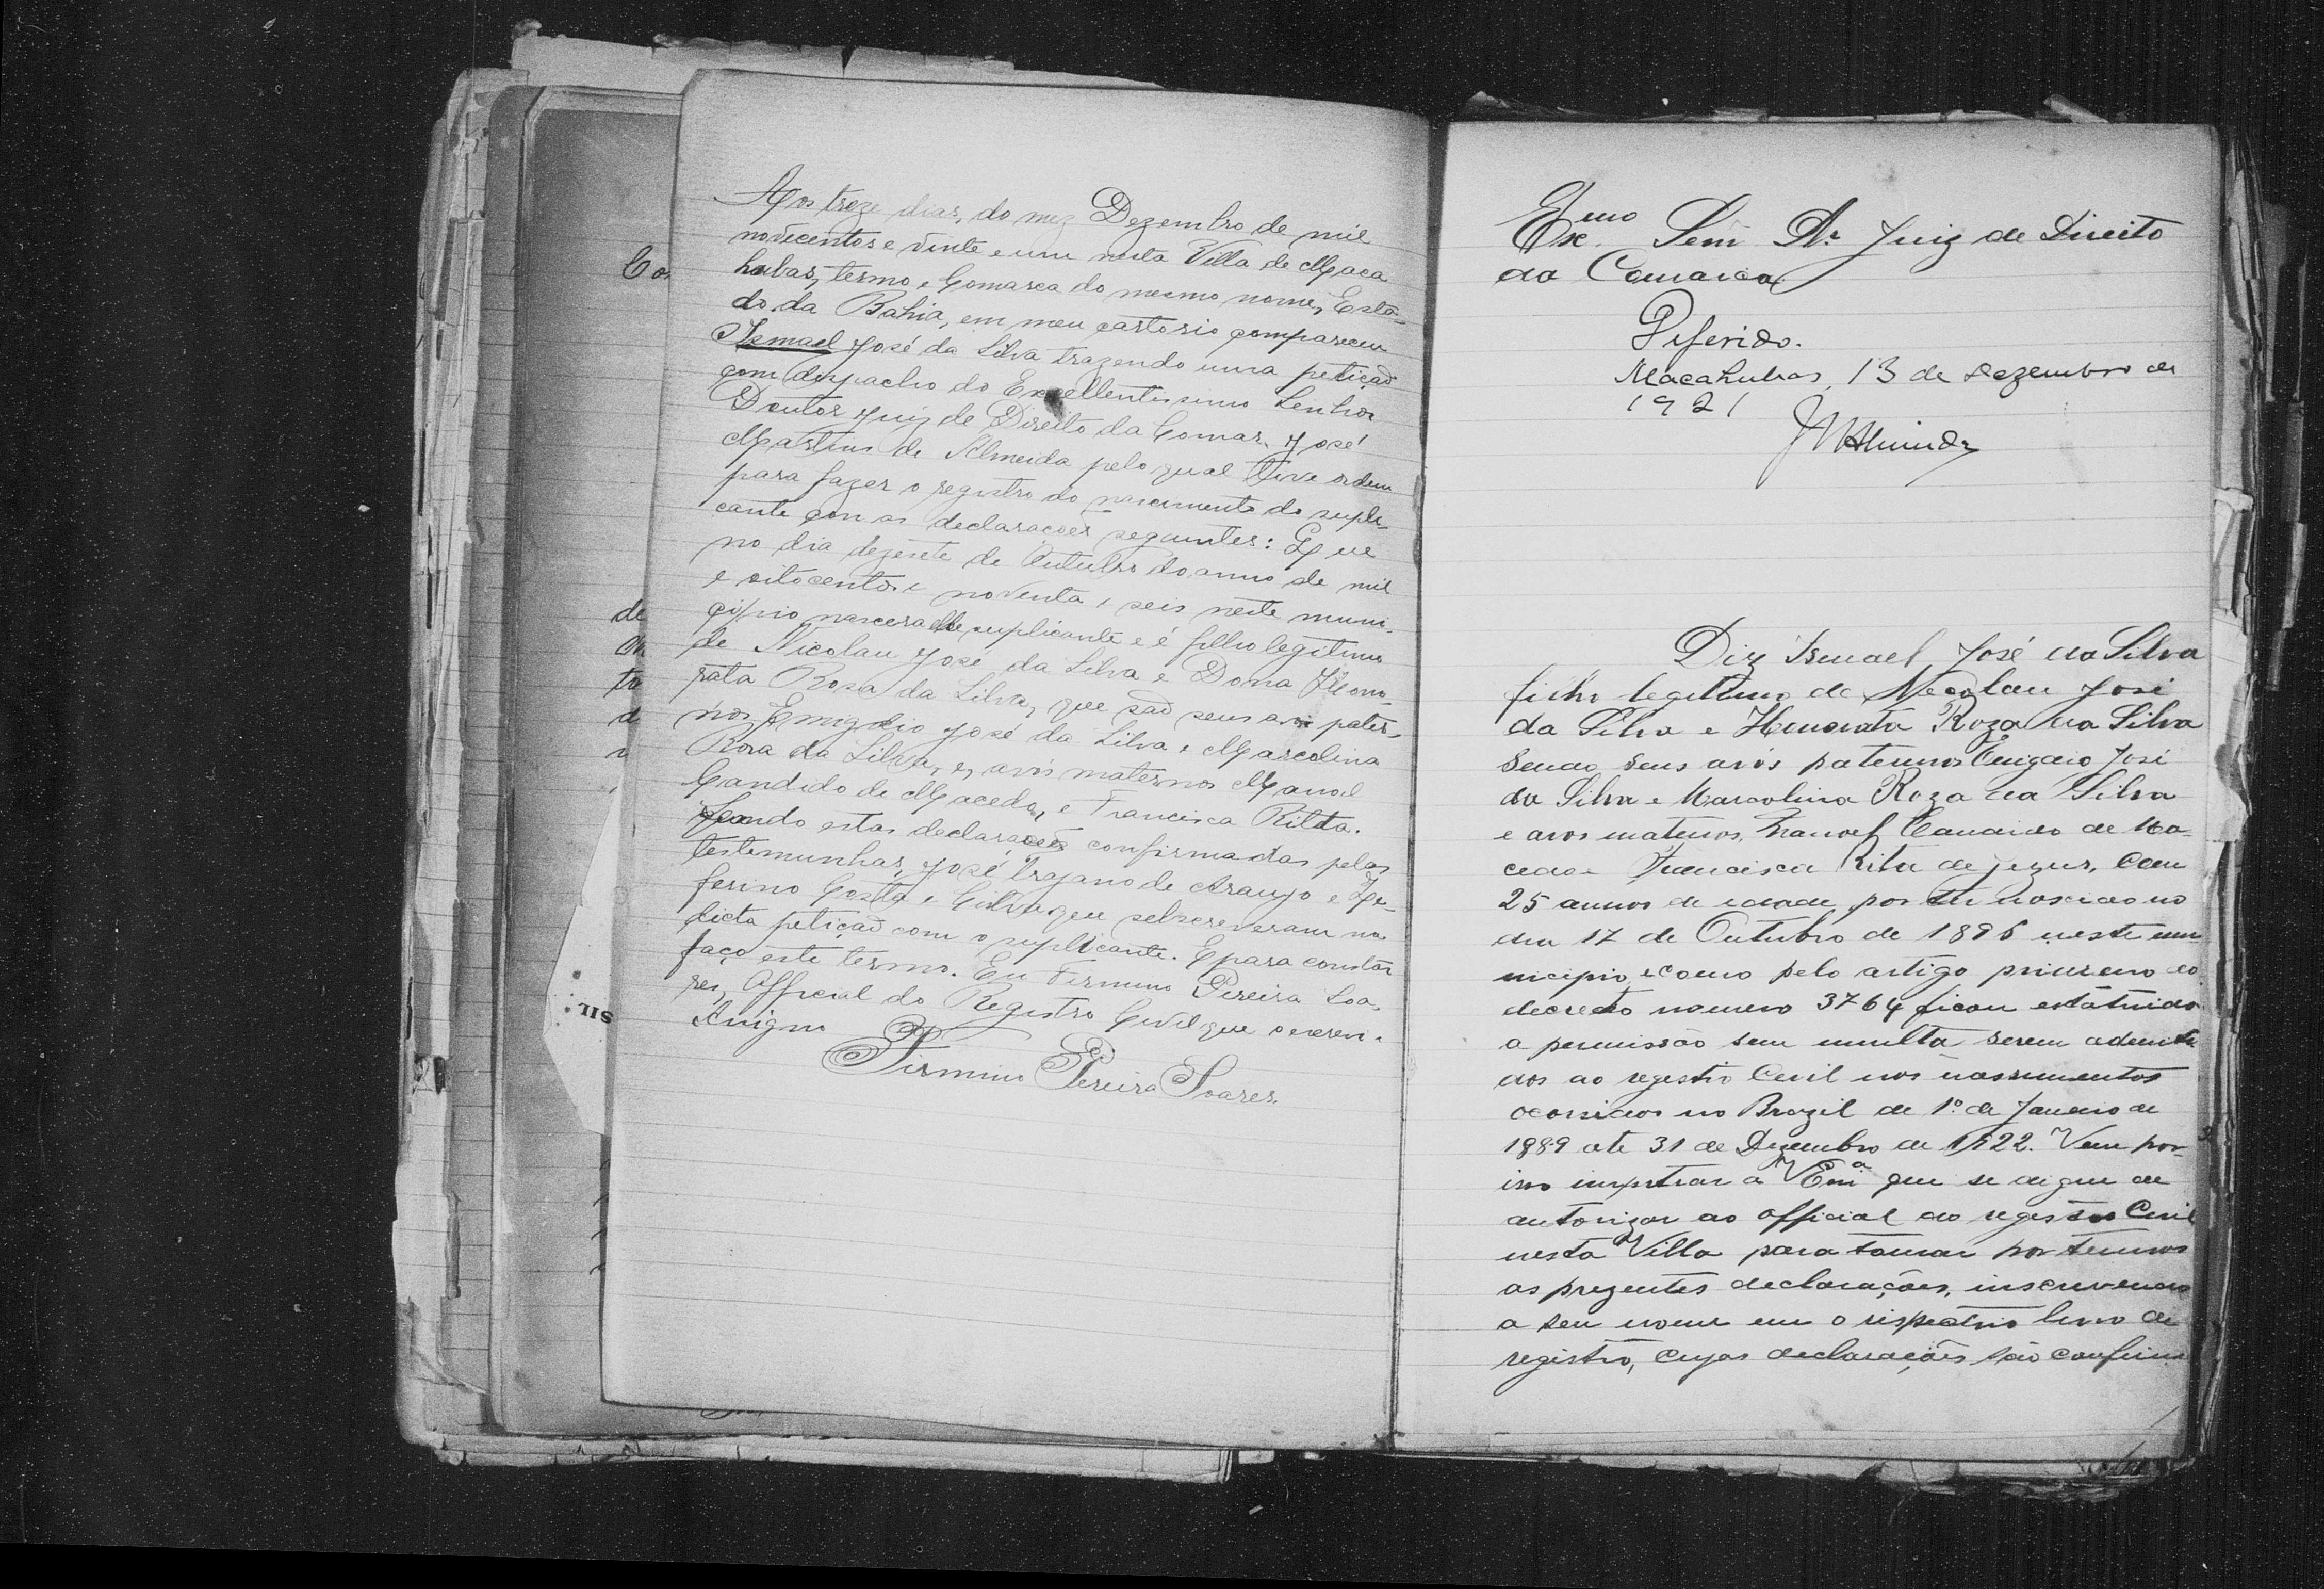 Aos treze dias, do mez Dezembro de mil
novecentos e vinte e um nesta Villa de Maca
hubas, termo e Comarca do mesmo nome, Esta-
do da Bahia, em meu cartorio compareceu
Ismael José da Silva trazendo uma petição
com despacho do Excellentissimo Senhor
Doutor Juiz de Direito da Comar. José
Martins de Almeida pelo qual tive ordem
para fazer o registro do nascimento do supli-
cante con as declarações seguintes: Que
no dia dezesete de Outubro do anno de mil
e oitocentos e noventa e seis neste muni-
cipio nascera elle suplicante e é filho legitimo
de Nicolau José da Silva e Dona Hono-
rata Rosa da Silva, que são seus avós pater-
nos Emigdio José da Silva e Marcolina
Rosa da Silva, e, avós maternos Manoel
Candido de Macedo, e Francisca Ritta.
Sendo estas declarações confirmadas pelas
testemunhas, José Trajano de Araujo e Ze-
ferino Costa e Silva que subscreveram na
dicta petição com o suplicante. E para constar
faço este termo. Eu Firmino Pereira Soa-
res, Official do Registro Civil que o escrevi.
Assigno
Firmino Pereira Soares.
Co
de
to
d
SII
Exmo Senr Dr Juiz de Direito
da Comarca
Deferido.
Macahubas, 13 de Dezembro de
1921
JMAlmeida
Diz Ismael José da Silva
filho legitimo de Necolau José
da Silva e Honorata Roza da Silva
sendo seus avós paternos Emigdio José
da Silva e Marcolina Roza da Silva
e avos maternos, Manoel Candido de Ma-
cedo e Francisca Rita de Jezus, com
25 annos de idade por ter nascido no
dia 17 de Outubro de 1896 neste mu
nicipio, e como pelo artigo primeiro do
decreto numero 3764 ficou estatuido
a permissão sem multa serem admiti
dos ao registro Civil nos nassimentos
ocorridos no Brazil de 1º de Janeiro de
1889 ate 31 de Dezembro de 1922. Vem por
isso impetrar a VExª que se digne de
autorizar ao official do registro Civil
nesta Villa para tomar por termos
as prezentes declarações, inscrevendo
a seu nome em o respectivo livro de
registro, cujas declarações são confirma